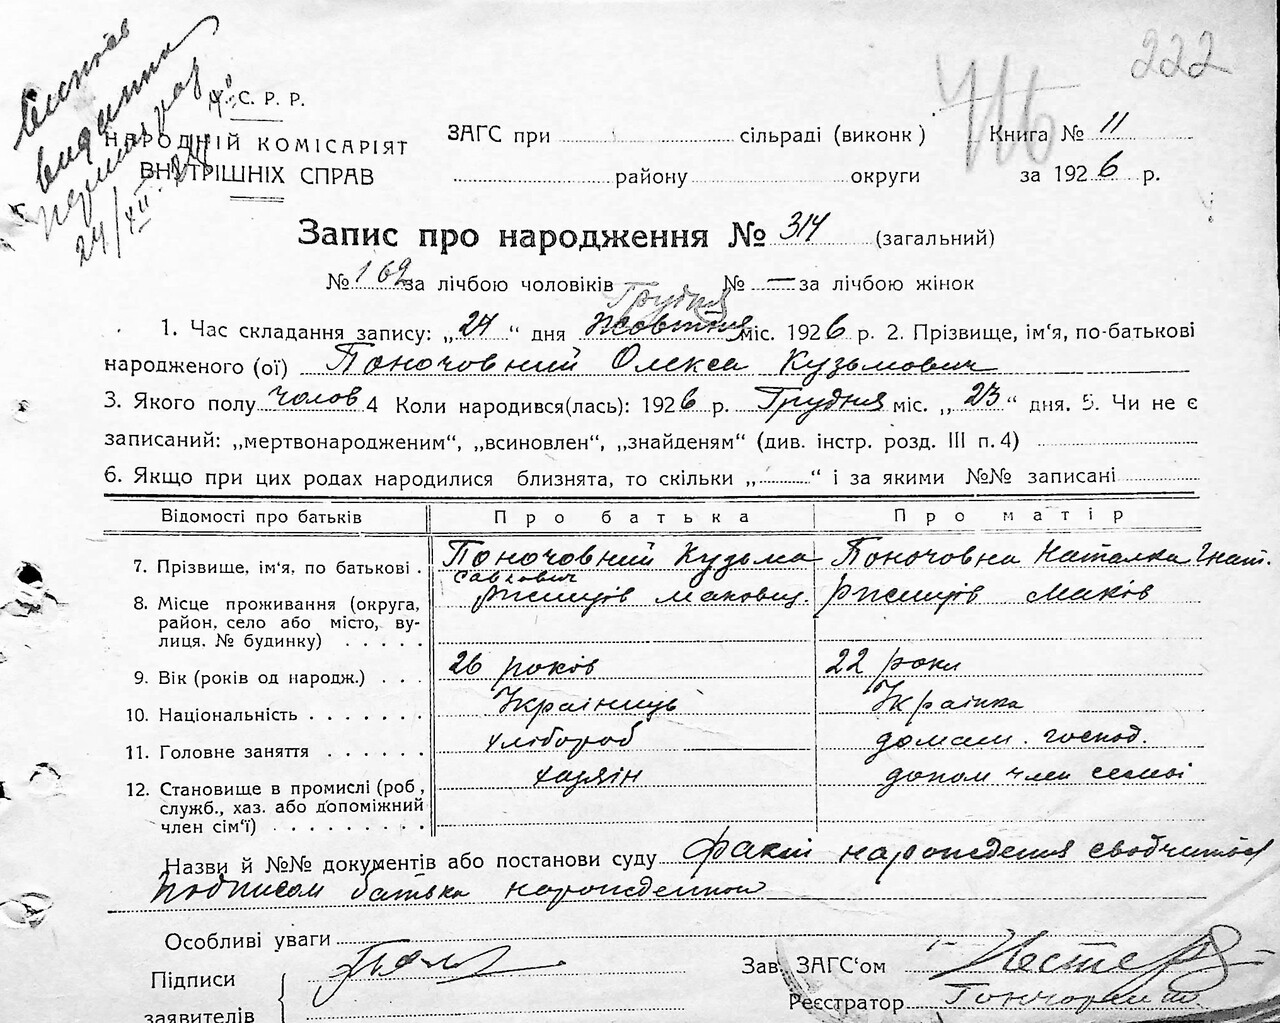 222
У. С. Р. Р.
НАРОДНІЙ КОМІСАРІЯТ
ВНУТРІШНІХ СПРАВ
24/XII
ЗАГС при сільраді (виконк)
району округи
Книга № 11
за 1926 р.
Запис про народження № 314 (загальний)
№ 169 за лічбою чоловіків № — за лічбою жінок
Грудня
1. Час складання запису: „24“ дня Жовтня міс. 1926 р. 2. Прізвище, ім‘я, по-батькові
народженого (ої) Поночовний Олекса Кузьмович
3. Якого полу чолов 4 Коли народився(лась): 1926 р. Грудня міс. „23“ дня. 5. Чи не є
записаний: „мертвонародженим“, „всиновлен“, „знайденям“ (див. інстр. розд. III п. 4)
6. Якщо при цих родах народилися близнята, то скільки „ “ і за якими №№ записані
Відомості про батьків Про батька Про матір
7. Прізвище, ім‘я, по батькові . Поночовний Кузьма Савкович Поночовна Наталка Гнат.
8. Місце проживання (округа,
район, село або місто, ву-
лиця. № будинку) . . . . .
Ржищів Ржищів Маків
9. Вік (років од народж.) . . . 26 років 22 роки
10. Національність . . . . . . . Українець Українка
11. Головне заняття . . . . . . хлібороб домаш. господ.
12. Становище в промислі (роб,
служб., хаз. або допоміжний
член сім‘ї) . . . . . . . . .
хазяїн допом член семьї
Назви й №№ документів або постанови суду Факт народження сводчиться
подписом батька
Особливі уваги
Підписи
заявителів
Зав. ЗАГС‘ом
Реєстратор